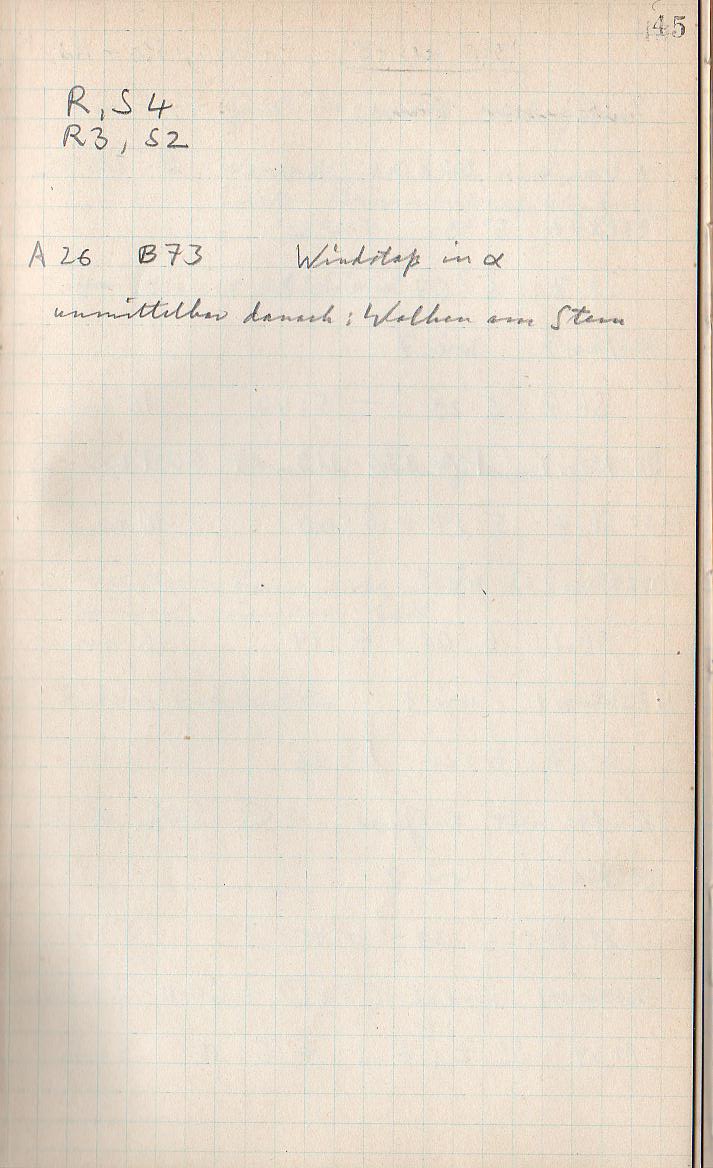 45
R, S 4
R3, S2
A 26 B73 Windstoß in α
unmittelbar danach: Wolken am Stern